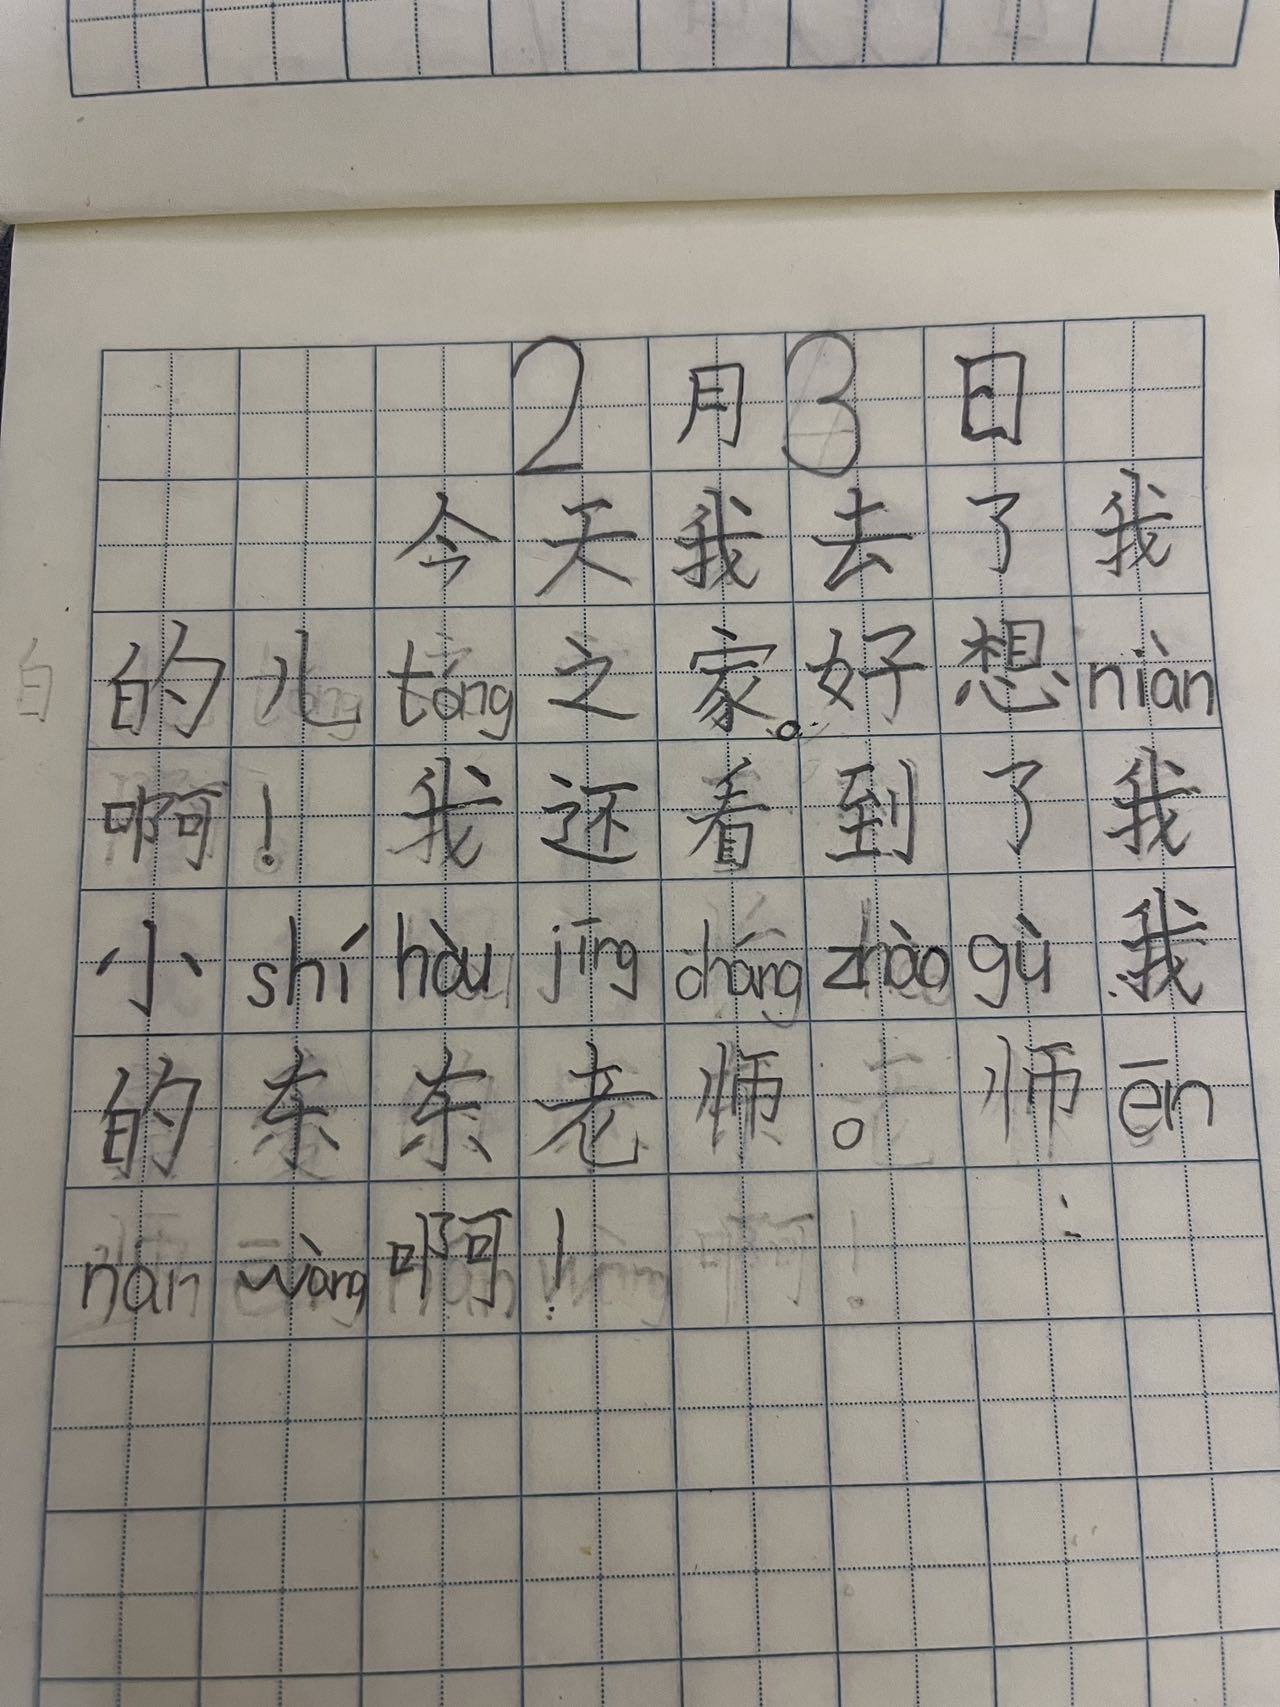 2月3日
今天我去了我
的儿tóng之家。好想niàn
啊！我还看到了我
小shíhòujīngchángzhàogù我
的东东老师。师ēn
nánwàng啊！